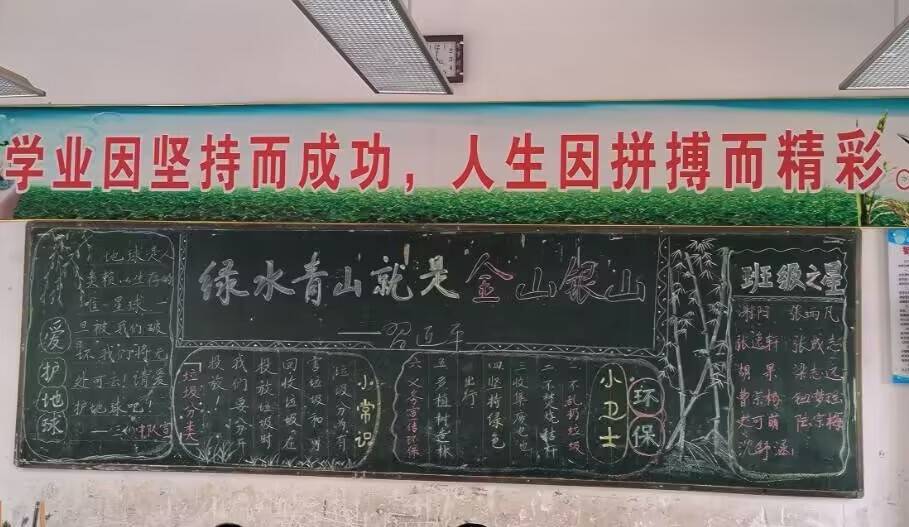 学业因坚持而成功，人生因拼搏而精彩。
绿水青山就是金山银山
——习近平
爱护地球
地球是人
类赖以生存的
唯一星球一
旦被我们破
坏我们将无
处可去!请爱
护地球吧!
小常识
垃圾分为有
害垃圾和可
回收垃圾在
投放垃圾时
我们要分开
投放!
【垃圾分类】
环保
小卫士
一不乱扔垃圾
二不焚烧秸秆
三收集废电池
四坚持绿色
出行
五多植树造林
六
班级之星
张雨凡
张逸轩 张成志
胡果 梁志远